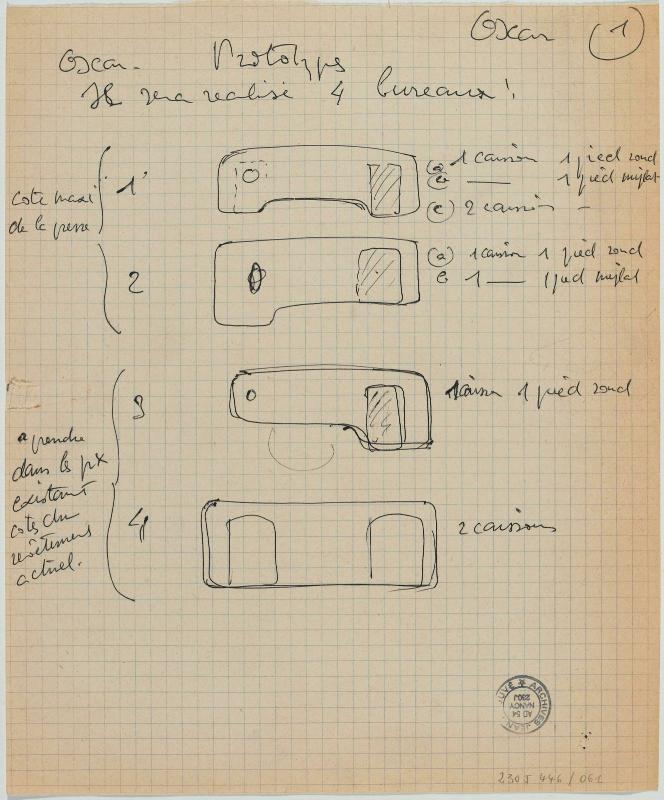 Oscar
1
Oscar. Prototypes
Il sera realisé 4 bureaux!
cote maxi
de la presse
1°
(a) 1 caisson 1 pied rond
(b) —— 1 pied méplat
(c) 2 caissons –
2
(a) 1 caisson 1 pied rond
b 1 —— 1 pied méplat
3
1 caisson 1 pied rond
a prendre
dans les px
existant
cotes du
revêtement
actuel.
4
2 caissons
ARCHIVES JEAN
AD 54
NANCY
230J
230 J 446 / 061